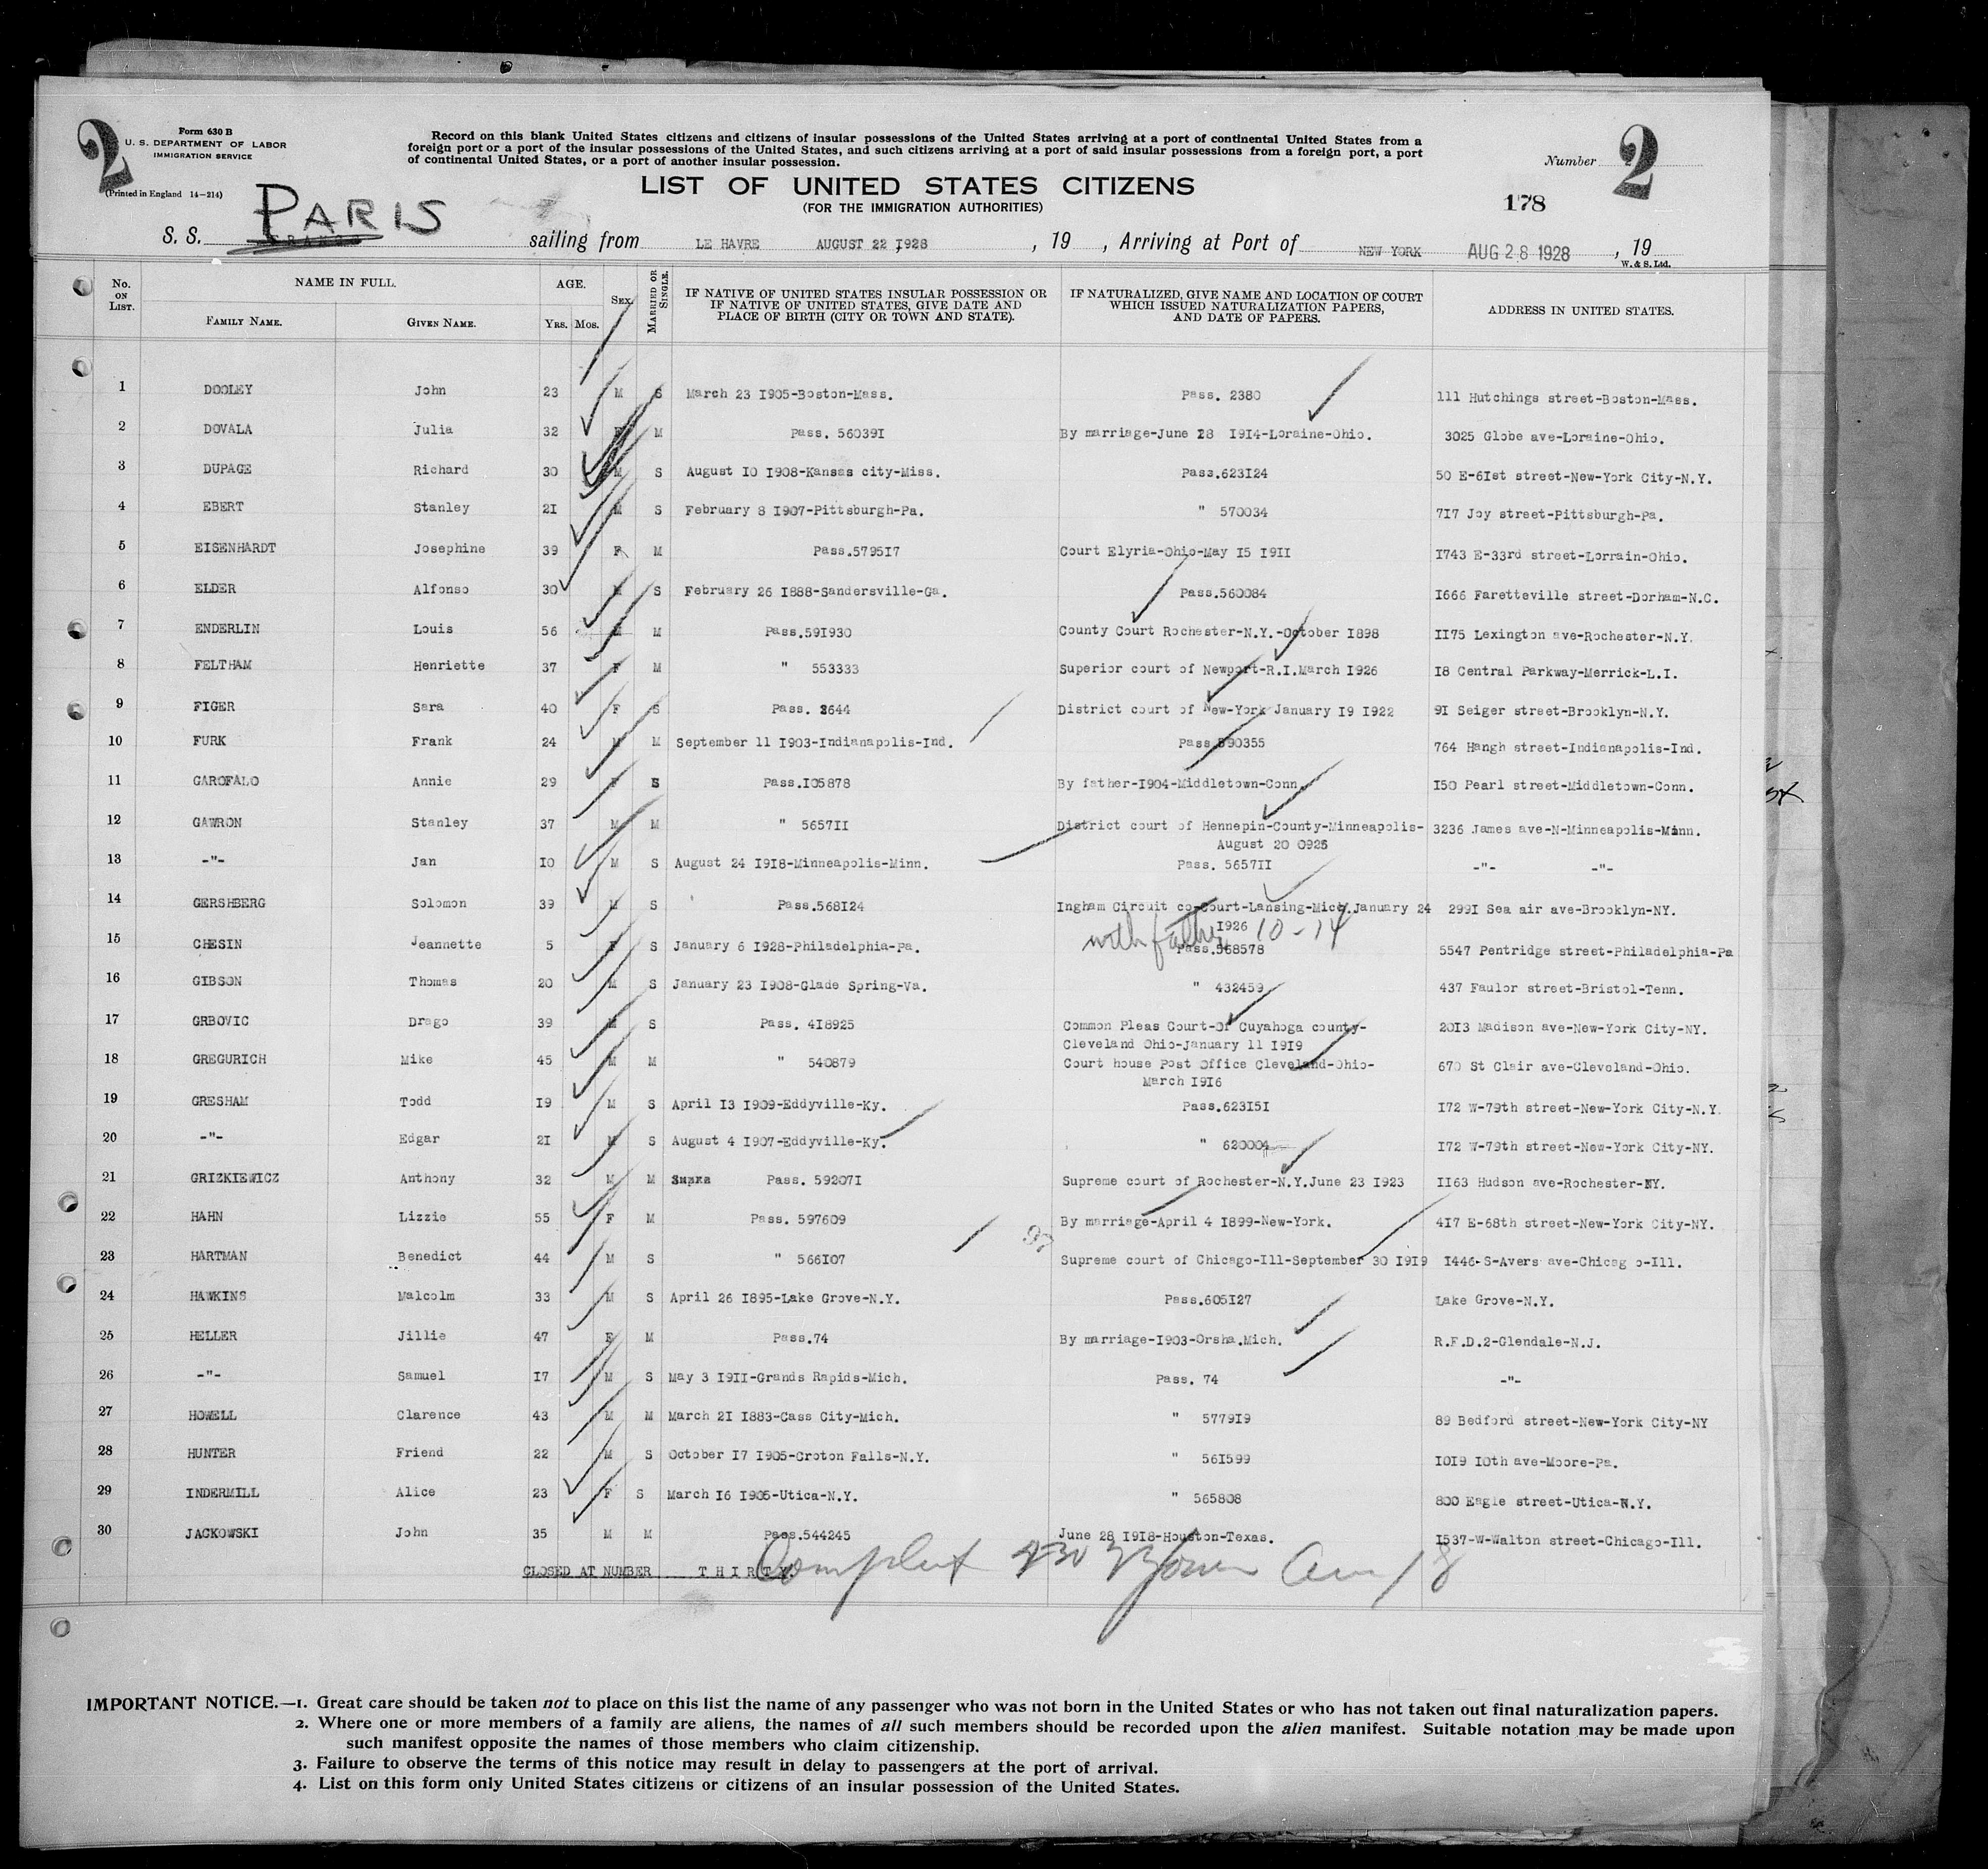 2
Form 630 B
U. S. DEPARTMENT OF LABOR
IMMIGRATION SERVICE
(Printed in England 14—214)
Record on this blank United States citizens and citizens of insular possessions of the United States arriving at a port of continental United States from a
foreign port or a port of the insular possessions of the United States, and such citizens arriving at a port of said insular possessions from a foreign port, a port
of continental United States, or a port of another insular possession.
LIST OF UNITED STATES CITIZENS
(FOR THE IMMIGRATION AUTHORITIES)
Number 2
178
S. S. PARIS sailing from LE HAVRE AUGUST 22 1928 , 19 , Arriving at Port of NEW YORK AUG 28 1928 , 19
W. & S. Ltd.
No. ON LIST. NAME IN FULL. FAMILY NAME. GIVEN NAME. AGE. YRS. MOS. SEX. MARRIED OR SINGLE. IF NATIVE OF UNITED STATES INSULAR POSSESSION OR IF NATIVE OF UNITED STATES, GIVE DATE AND PLACE OF BIRTH (CITY OR TOWN AND STATE). IF NATURALIZED, GIVE NAME AND LOCATION OF COURT WHICH ISSUED NATURALIZATION PAPERS, AND DATE OF PAPERS. ADDRESS IN UNITED STATES.
1 DOOLEY John 23 M S March 23 I905-Boston-Mass. Pass. 2380 111 Hutchings street-Boston-Mass.
2 DOVALA Julia 32 F M Pass. 56039I By marriage-June 28 I9I4-Loraine-Ohio. 3025 Globe ave-Loraine-Ohio.
3 DUPAGE Richard 30 M S August I0 I908-Kansas city-Miss. Pass.623I24 50 E-6Ist street-New-York City-N.Y.
4 EBERT Stanley 2I M S February 8 I907-Pittsburgh-Pa. " 570034 7I7 Joy street-Pittsburgh-Pa.
5 EISENHARDT Josephine 39 F M Pass.5795I7 Court Elyria-Ohio-May I5 I9II I743 E-33rd street-Lorrain-Ohio.
6 ELDER Alfonso 30 M S February 26 I888-Sandersville-Ga. Pass.560084 I666 Faretteville street-Dorham-N.C.
7 ENDERLIN Louis 56 M M Pass.59I930 County Court Rochester-N.Y.-October I898 II75 Lexington ave-Rochester-N.Y.
8 FELTHAM Henriette 37 F M " 553333 Superior court of Newport-R.I.March I926 I8 Central Parkway-Merrick-L.I.
9 FIGER Sara 40 F S Pass. 3644 District court of New-York January I9 I922 9I Seiger street-Brooklyn-N.Y.
10 FURK Frank 24 M M September 11 I903-Indianapolis-Ind. Pass.590355 764 Hangh street-Indianapolis-Ind.
11 GAROFALO Annie 29 F S Pass.I05878 By father-I904-Middletown-Conn. I50 Pearl street-Middletown-Conn.
12 GAWRON Stanley 37 M M " 5657II District court of Hennepin-County-Minneapolis- 3236 James ave-N-Minneapolis-Minn.
August 20 0925
13 -"- Jan I0 M S August 24 I9I8-Minneapolis-Minn. Pass. 5657II -"- -"-
14 GERSHBERG Solomon 39 M S Pass.568I24 Ingham Circuit co-Court-Lansing-Mich.January 24 299I Sea air ave-Brooklyn-NY.
I926
with father 10-14
15 CHESIN Jeannette 5 F S January 6 I928-Philadelphia-Pa. Pass.568578 5547 Pentridge street-Philadelphia-Pa
16 GIBSON Thomas 20 M S January 23 I908-Glade Spring-Va. " 432459 437 Faulor street-Bristol-Tenn.
17 GRBOVIC Drago 39 M S Pass. 4I8925 Common Pleas Court-Of Cuyahoga county- 20I3 Madison ave-New-York City-NY.
Cleveland Ohio-January 11 I9I9
18 GREGURICH Mike 45 M M " 540879 Court house Post Office Cleveland-Ohio- 670 St Clair ave-Cleveland-Ohio.
March I9I6
19 GRESHAM Todd I9 M S April I3 I909-Eddyville-Ky. Pass.623I5I I72 W-79th street-New-York City-N.Y.
20 -"- Edgar 2I M S August 4 I907-Eddyville-Ky. " 620004 I72 W-79th street-New-York City-NY.
21 GRIZKIEWICZ Anthony 32 M M Pass. 59207I Supreme court of Rochester-N.Y.June 23 I923 II63 Hudson ave-Rochester-NY.
22 HAHN Lizzie 55 F M Pass. 597609 By marriage-April 4 I899-New-York. 4I7 E-68th street-New-York City-NY.
23 HARTMAN Benedict 44 M S " 566I07 Supreme court of Chicago-Ill-September 30 I9I9 I446-S-Avers ave-Chicag o-Ill.
24 HAWKINS Malcolm 33 M S April 26 I895-Lake Grove-N.Y. Pass.605I27 Lake Grove-N.Y.
25 HELLER Jillie 47 F M Pass.74 By marriage-I903-Orsha.Mich. R.F.D.2-Glendale-N.J.
26 -"- Samuel I7 M S May 3 I9II-Grands Rapids-Mich. Pass. 74 -"-
27 HOWELL Clarence 43 M M March 2I I883-Cass City-Mich. " 5779I9 89 Bedford street-New-York City-NY
28 HUNTER Friend 22 M S October I7 I905-Croton Falls-N.Y. " 56I599 I0I9 I0th ave-Moore-Pa.
29 INDERMILL Alice 23 F S March I6 I905-Utica-N.Y. " 565808 800 Eagle street-Utica-N.Y.
30 JACKOWSKI John 35 M M Pass.544245 June 28 I9I8-Houston-Texas. I537-W-Walton street-Chicago-Ill.
CLOSED AT NUMBER T H I R T Y.
IMPORTANT NOTICE.—1. Great care should be taken not to place on this list the name of any passenger who was not born in the United States or who has not taken out final naturalization papers.
2. Where one or more members of a family are aliens, the names of all such members should be recorded upon the alien manifest. Suitable notation may be made upon
such manifest opposite the names of those members who claim citizenship.
3. Failure to observe the terms of this notice may result in delay to passengers at the port of arrival.
4. List on this form only United States citizens or citizens of an insular possession of the United States.